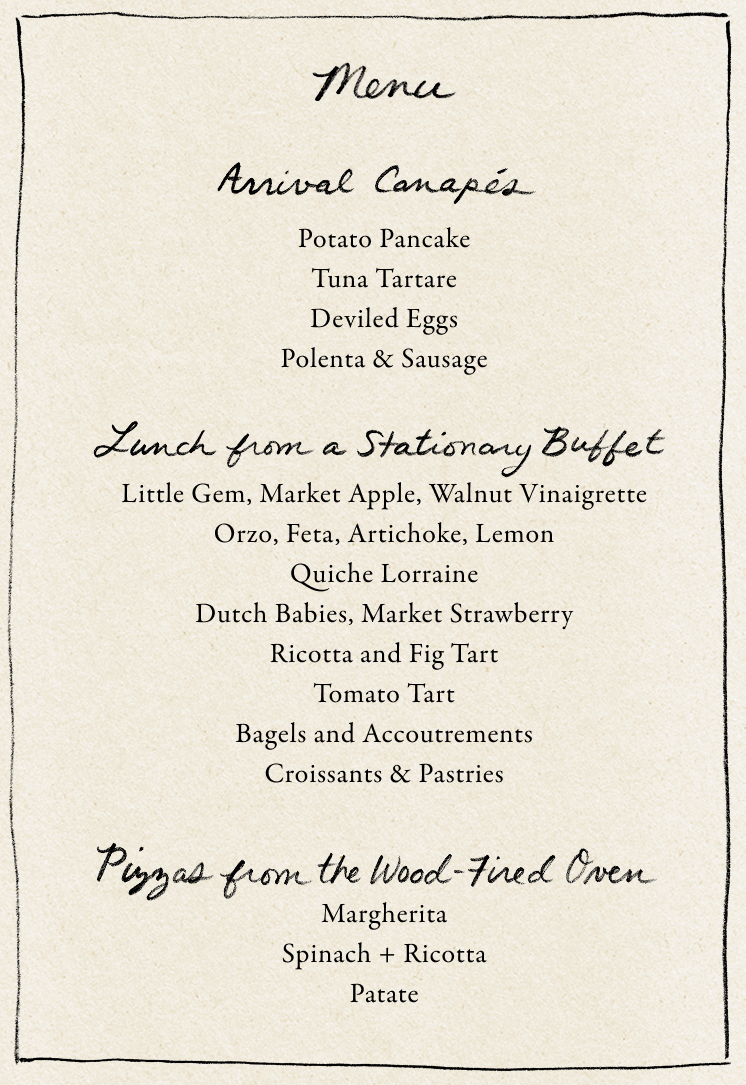 Menu
Arrival Canapés
Potato Pancake
Tuna Tartare
Deviled Eggs
Polenta & Sausage
Lunch from a Stationary Buffet
Little Gem, Market Apple, Walnut Vinaigrette
Orzo, Feta, Artichoke, Lemon
Quiche Lorraine
Dutch Babies, Market Strawberry
Ricotta and Fig Tart
Tomato Tart
Bagels and Accoutrements
Croissants & Pastries
Pizzas from the Wood-Fired Oven
Margherita
Spinach + Ricotta
Patate